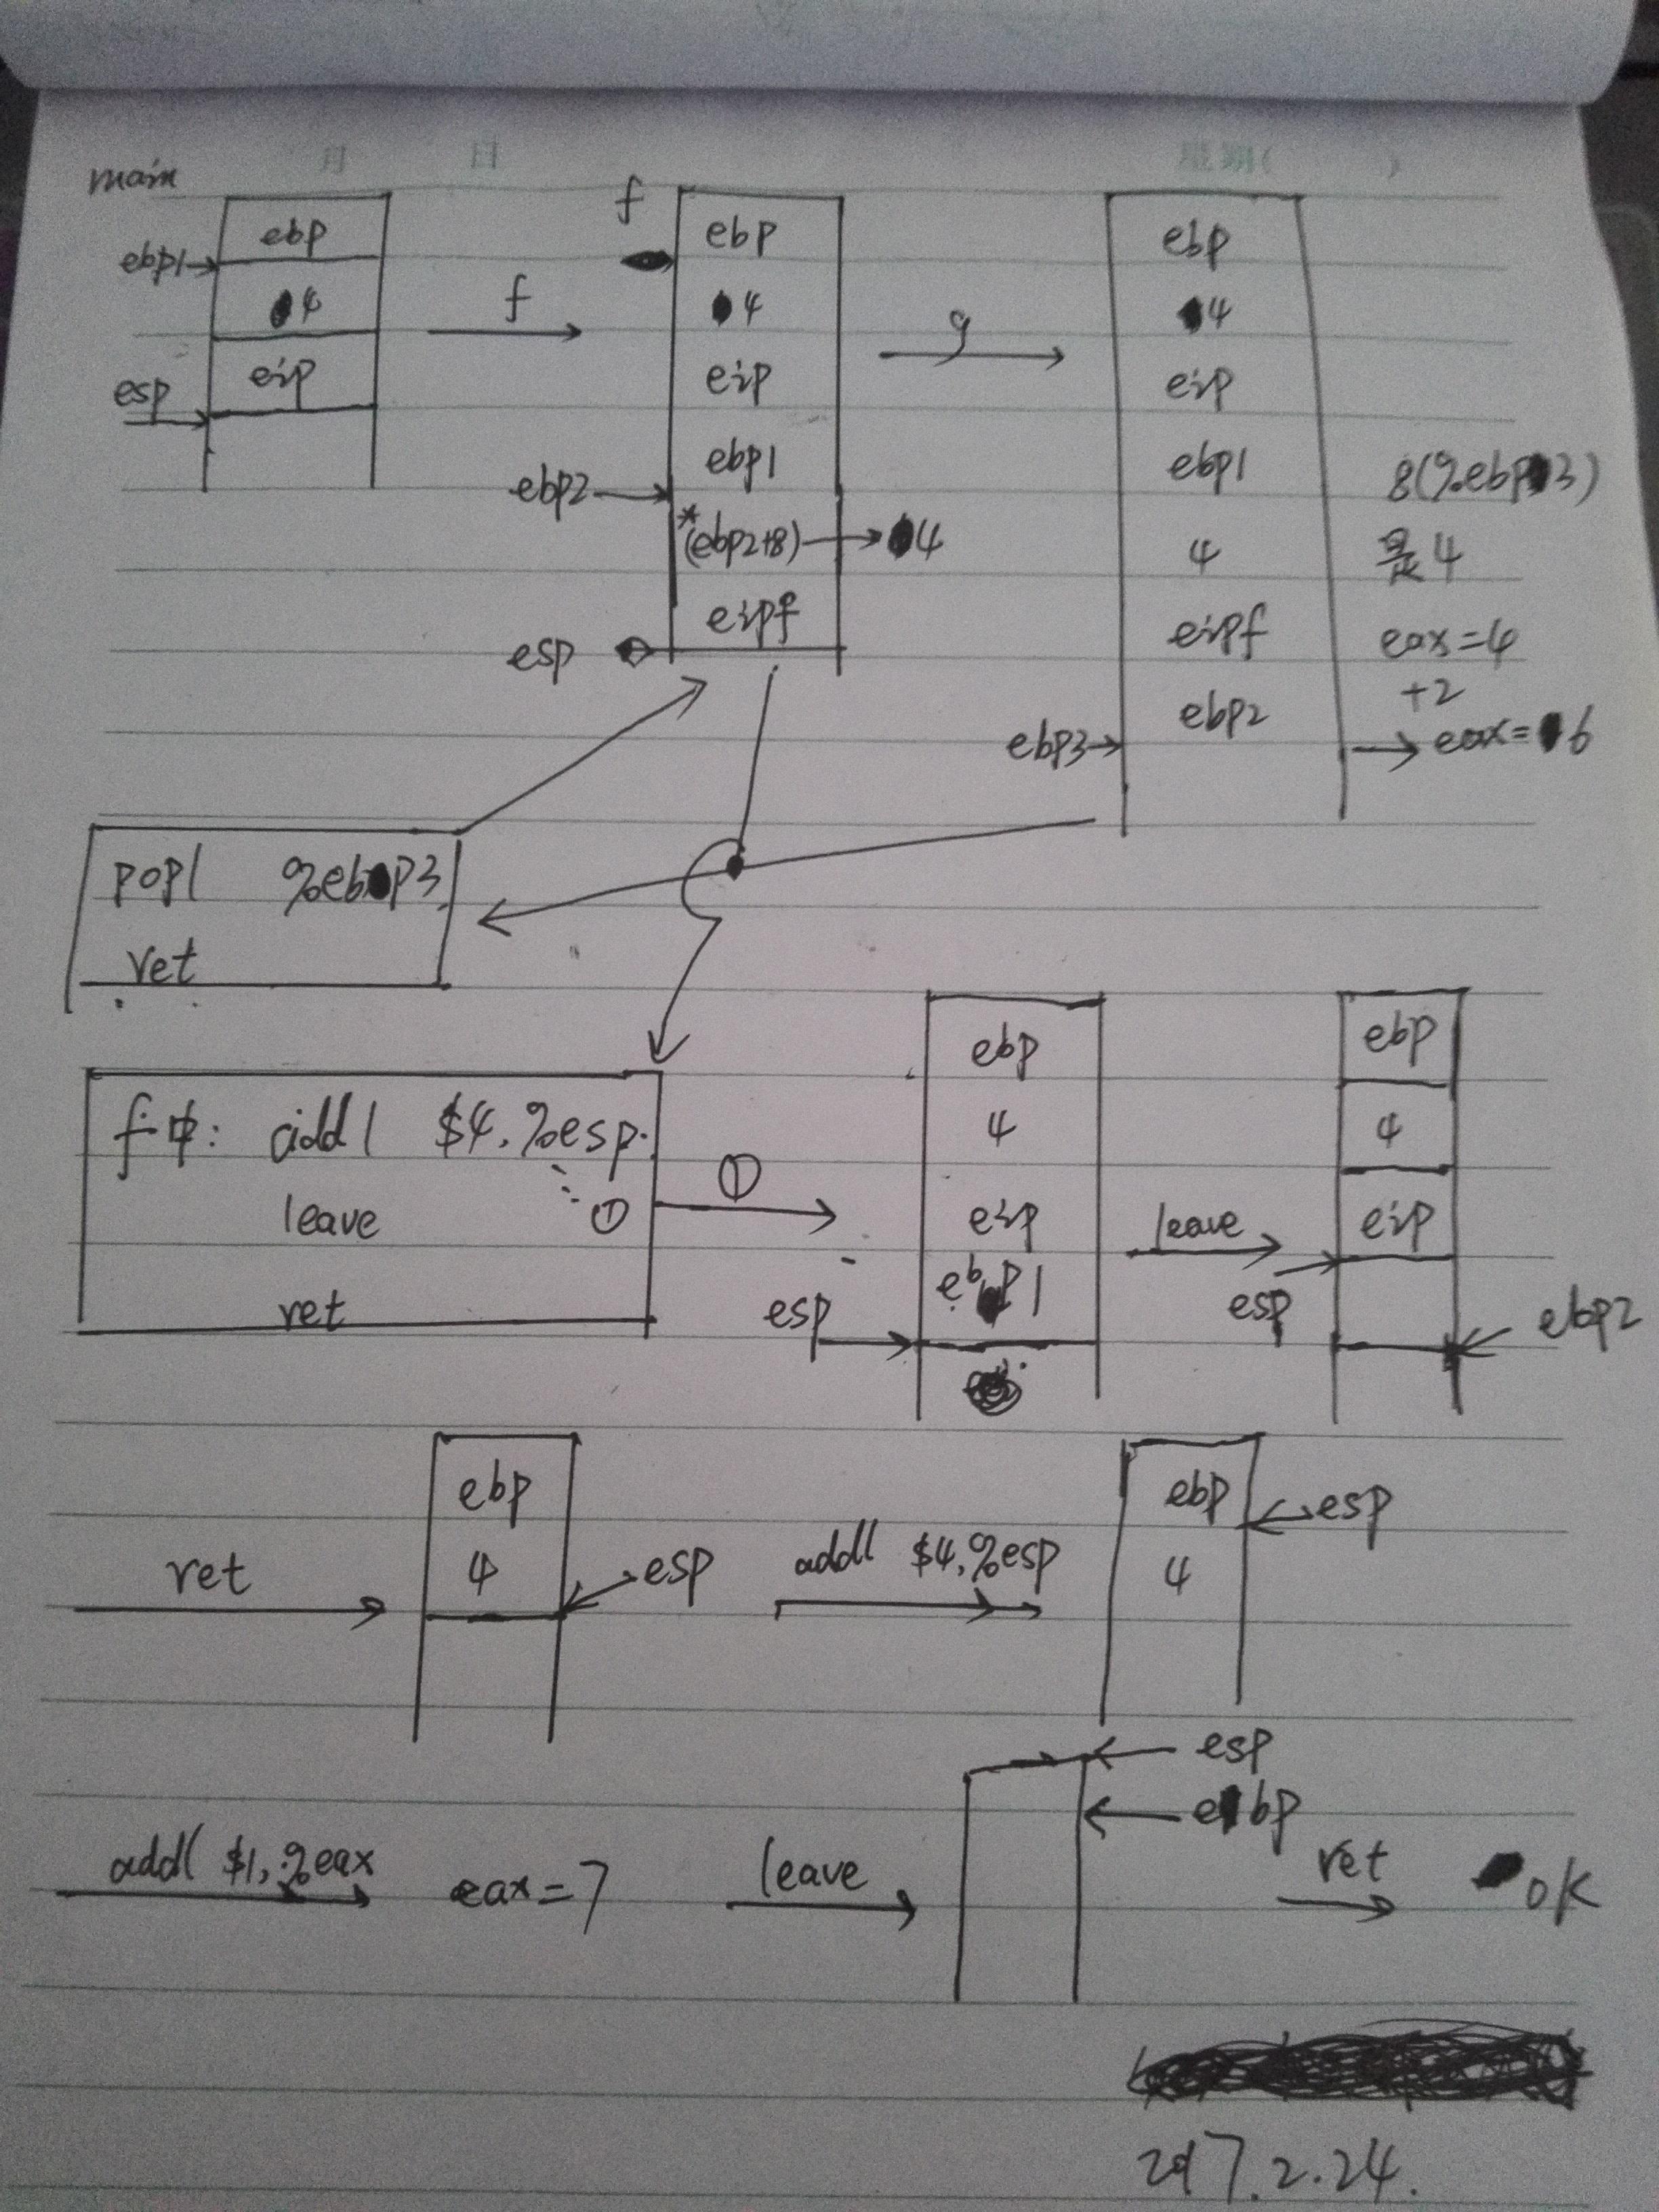 月 日 星期( )
main
ebp
ebp1
4
eip
esp
f
f
ebp
4
eip
ebp1
ebp2
*(ebp2+8) 4
eipf
esp
g
ebp
4
eip
ebp1
4
eipf
ebp2
ebp3
8(%ebp3)
是4
eax=4
+2
eax=6
popl %ebp3
ret
f中: addl $4,%esp
leave ①
ret
①
ebp
4
eip
ebp1
esp
leave
ebp
4
eip
esp
ebp2
ret
ebp
4
esp
addl $4,%esp
ebp
4
esp
addl $1,%eax
eax=7
leave
esp
ebp
ret
ok
2017.2.24.